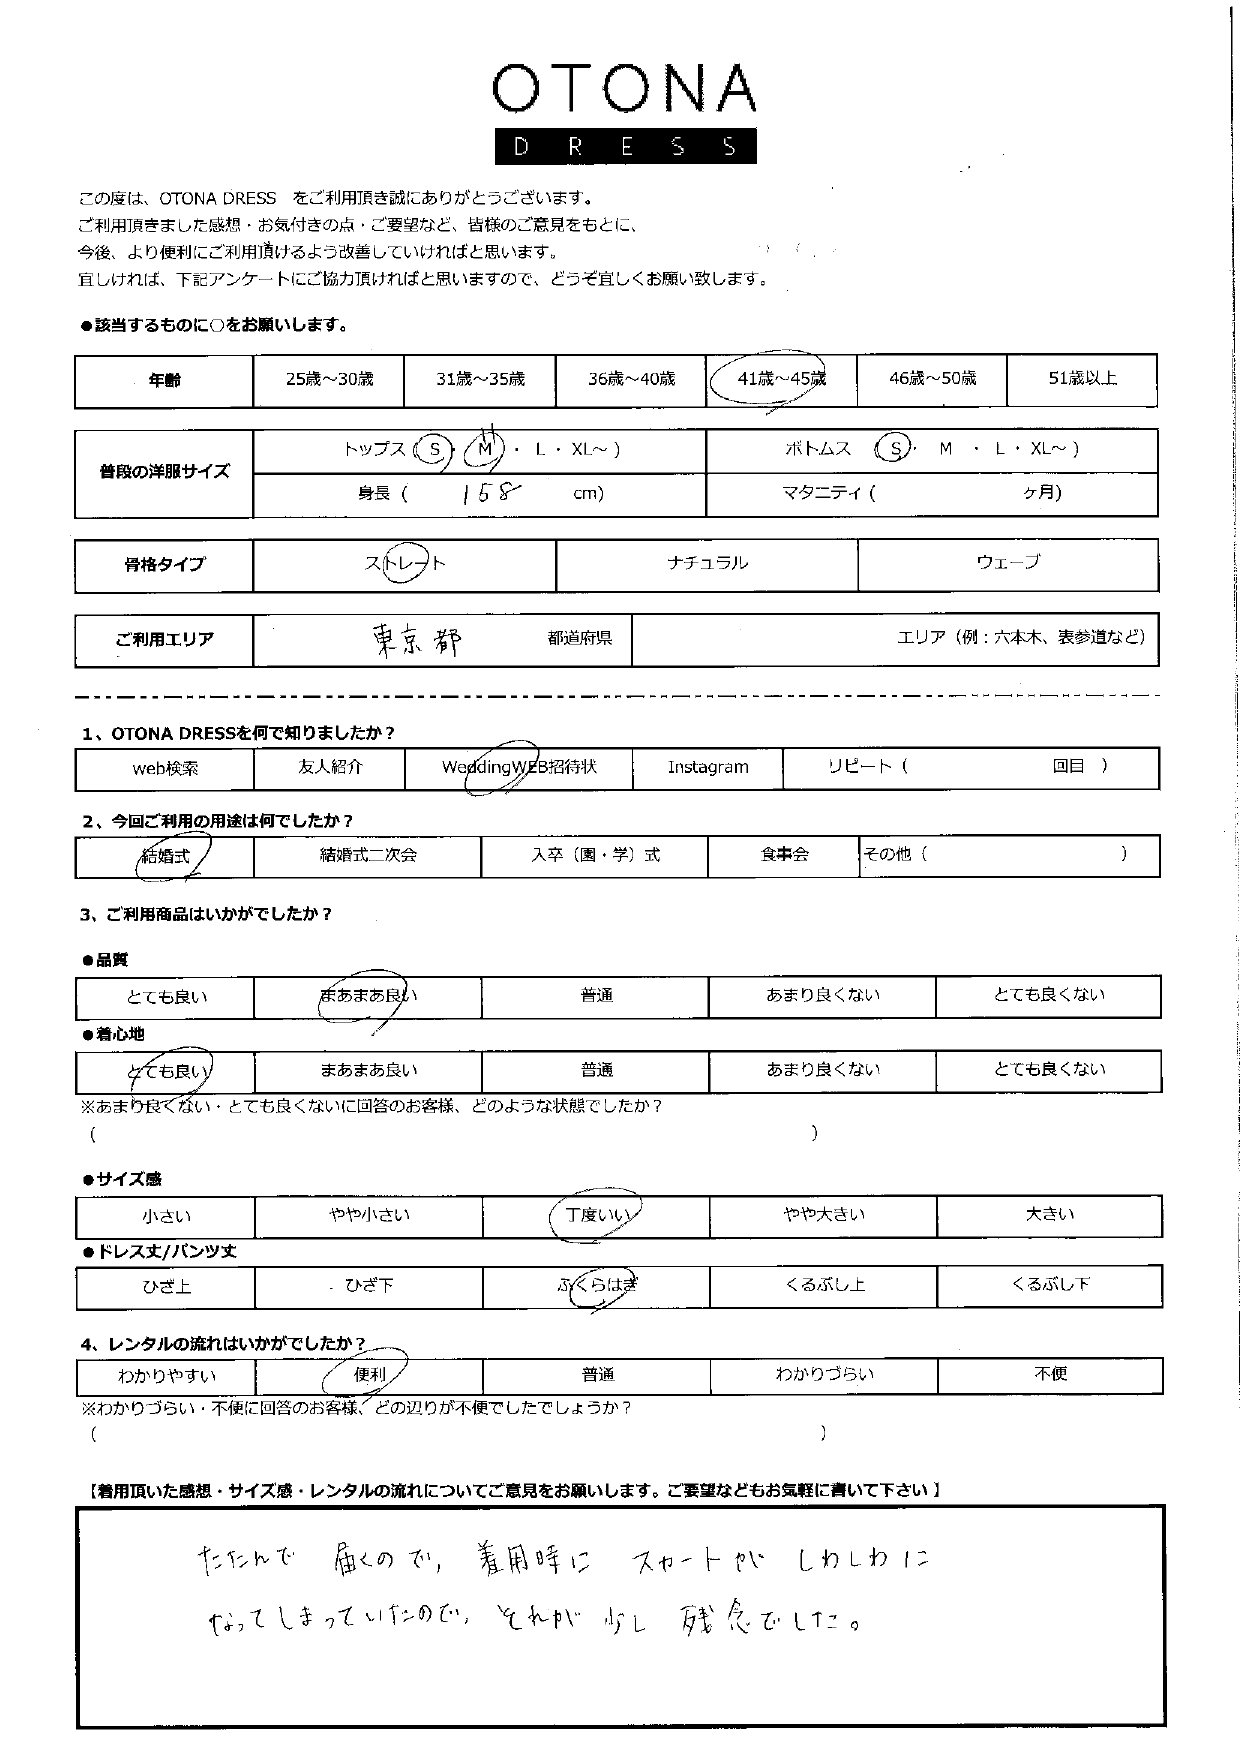 OTONA
DRESS
この度は、OTONA DRESS をご利用頂き誠にありがとうございます。
ご利用頂きました感想・お気付きの点・ご要望など、皆様のご意見をもとに、
今後、より便利にご利用頂けるよう改善していければと思います。
宜しければ、下記アンケートにご協力頂ければと思いますので、どうぞ宜しくお願い致します。
●該当するものに○をお願いします。
年齢 25歳～30歳 31歳～35歳 36歳～40歳 41歳～45歳 46歳～50歳 51歳以上
普段の洋服サイズ トップス (S・M・L・XL～) ボトムス (S・M・L・XL～)
身長 ( 158 cm) マタニティ ( ヶ月)
骨格タイプ ストレート ナチュラル ウェーブ
ご利用エリア 東京都 都道府県 エリア（例：六本木、表参道など）
1、OTONA DRESSを何で知りましたか？
web検索 友人紹介 WeddingWEB招待状 Instagram リピート（ 回目 ）
2、今回ご利用の用途は何でしたか？
結婚式 結婚式二次会 入卒（園・学）式 食事会 その他（ ）
3、ご利用商品はいかがでしたか？
●品質
とても良い まあまあ良い 普通 あまり良くない とても良くない
●着心地
とても良い まあまあ良い 普通 あまり良くない とても良くない
※あまり良くない・とても良くないに回答のお客様、どのような状態でしたか？
( )
●サイズ感
小さい やや小さい 丁度いい やや大きい 大きい
●ドレス丈/パンツ丈
ひざ上 ひざ下 ふくらはぎ くるぶし上 くるぶし下
4、レンタルの流れはいかがでしたか？
わかりやすい 便利 普通 わかりづらい 不便
※わかりづらい・不便に回答のお客様、どの辺りが不便でしたでしょうか？
( )
【着用頂いた感想・サイズ感・レンタルの流れについてご意見をお願いします。ご要望などもお気軽に書いて下さい】
たたんで 届くので、着用時に スカートが しわしわに
なってしまっていたので、それが 少し 残念でした。